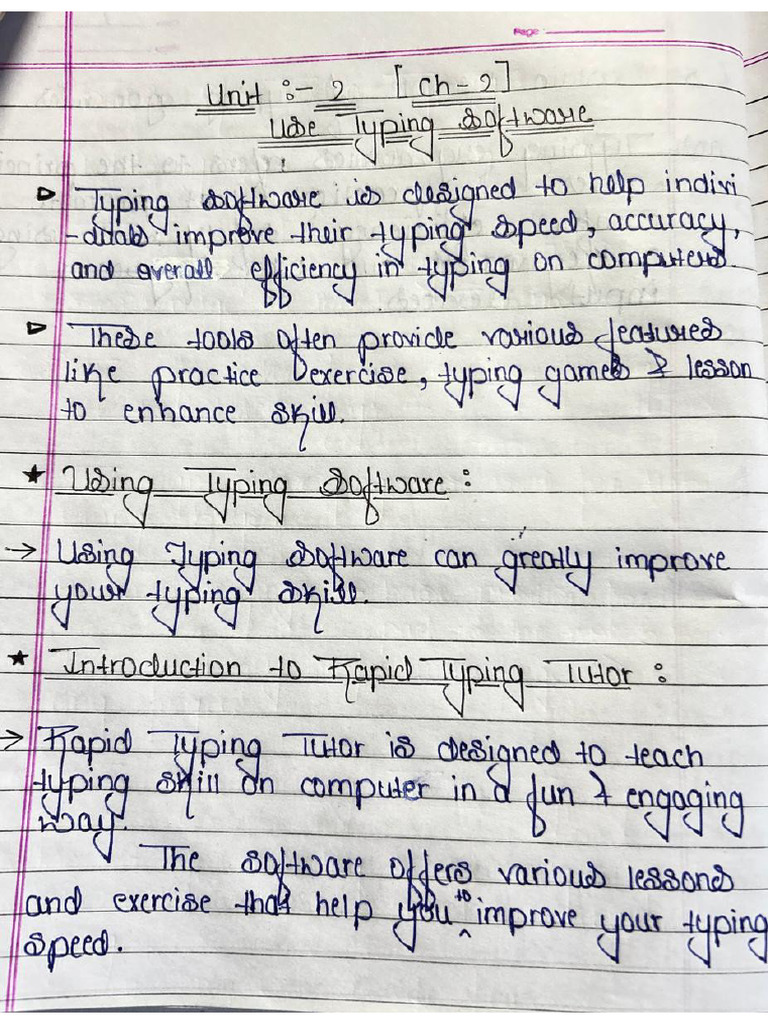 Page:
Unit :- 2 [Ch-2]
Use Typing Software
▷ Typing software is designed to help indivi
-duals improve their typing speed, accuracy,
and overall efficiency in typing on computers.
▷ These tools often provide various features
like practice exercise, typing games & lesson
to enhance skill.
★ Using Typing Software :
→ Using Typing software can greatly improve
your typing skill.
★ Introduction to Rapid Typing Tutor :
→ Rapid Typing Tutor is designed to teach
typing skill on computer in a fun & engaging
way.
The software offers various lessons
and exercise that help you to improve your typing
speed.